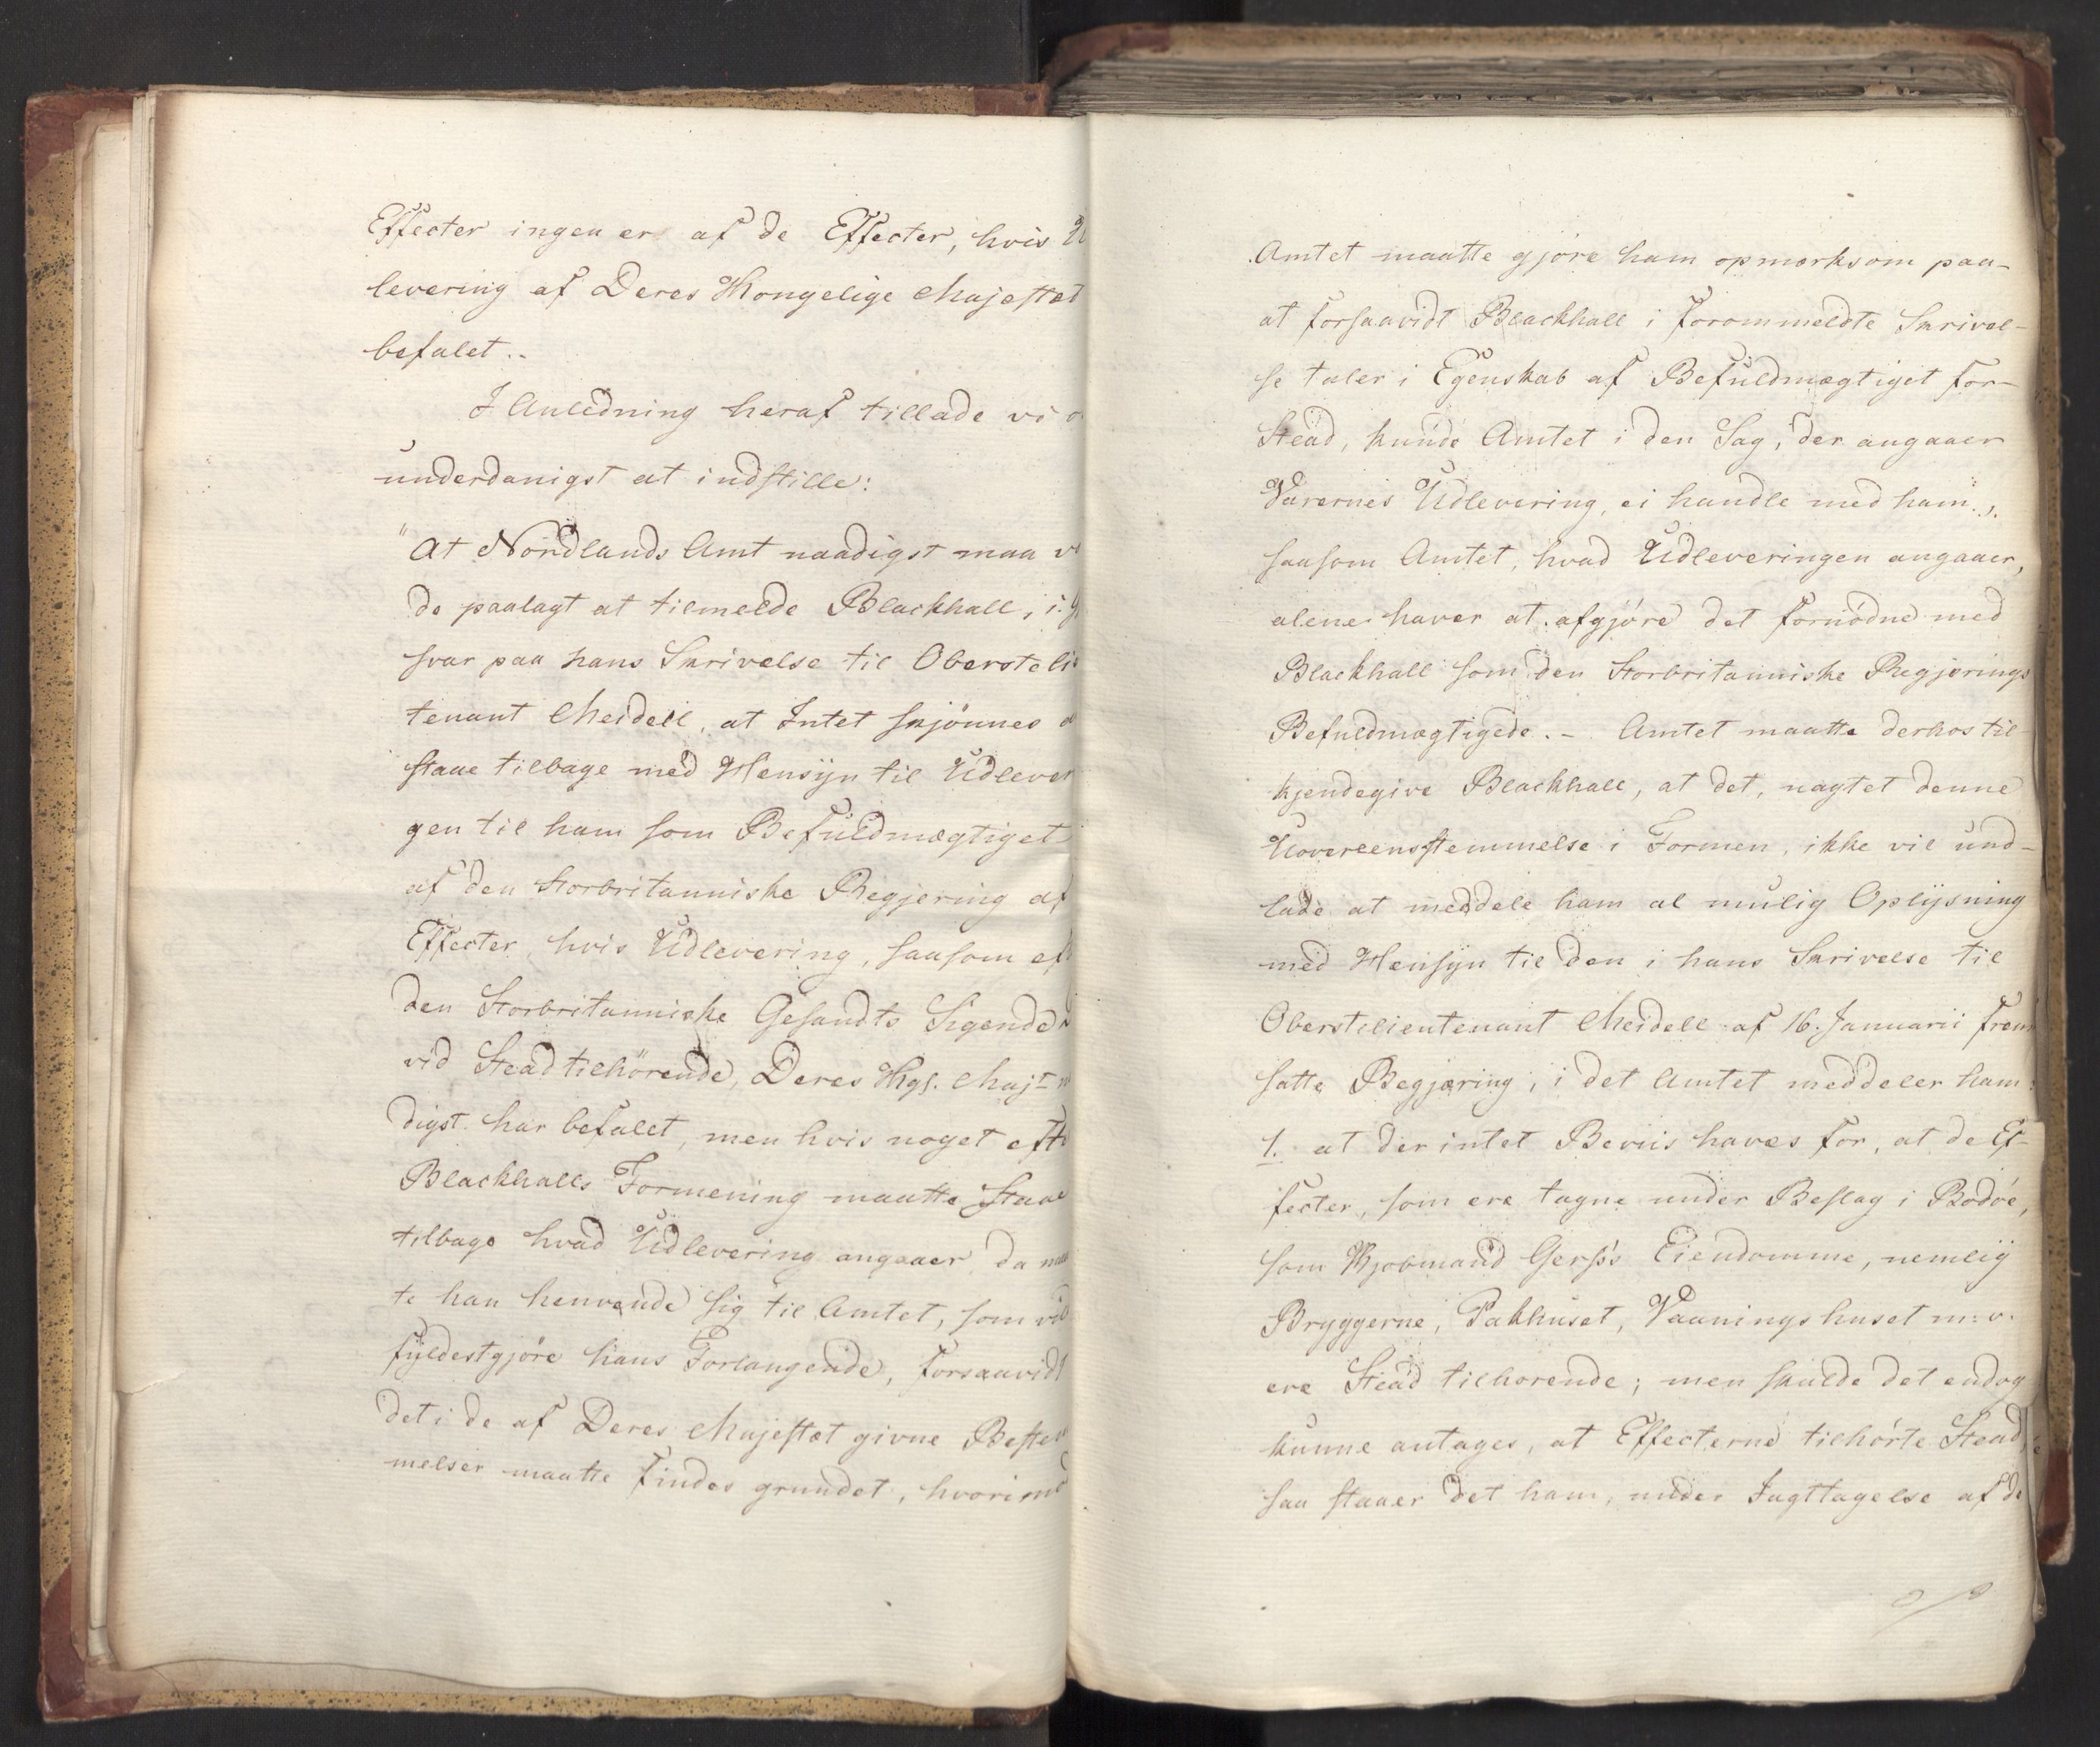 Effecter ingen er af de Effecter, hvis
levering af Deres Kongelige Majestæt
befalet..
I Anledning heraf tillade vi
underdanigst at indstille:
"At Nordlands Amt naadigst maa
de paalagt at tilmelde Blackhall, i
svar paa hans Skrivelse til Oberstelie
tenant Meidell, at Intet skjönnes
staae tilbage med Hensyn til Udlever
gen til ham som Befuldmægtiget
af den Storbritanniske Regjering af
Effecter, hvis Udlevering, saasom
den Storbritanniske Gesandts Sigende
vid Stead tilhörende, Deres Kgl. Majt
digst har befalet, men hvis noget eft
Blackhalls Formening maatte Staae
tilbage hvad Udlevering angaaer, da
te han henvende sig til Amtet, som
fyldestgjöre hans Forlangende, forsaavidt
det i de af Deres Majestæt givne Bestem
melser maatte findes grundet, hvorimod
Amtet maatte gjöre ham opmærksom paa
at forsaavidt Blackhall i forommeldte Skrivel-
se taler i Egenskab af Befuldmægtiget for
Stead, kunde Amtet i den Sag, der angaaer
Varernes Udlevering, ei handle med ham,
saasom Amtet, hvad Udleveringen angaaer,
alene haver at afgjöre det fornödne med
Blackhall som den Storbritanniske Regjerings
Befuldmægtigede. - Amtet maatte derhos til-
kjendegive Blackhall, at det, uagtet denne
Uovereensstemmelse i Formen, ikke vil und-
lade at meddele ham al mulig Oplysning
med Hensyn til den i hans Skrivelse til
Oberstelieutenant Meidell af 16. Januarii frem
satte Begjæring, i det Amtet meddeler ham:
1. at der intet Beviis haves for, at de Ef-
fecter, som ere tagne under Beslag i Bodöe,
som Kjøbmand Gerss's Eiendomme, nemlig
Bryggerne, Pakhuset, Vaaningshuset m: v.
ere Stead tilhorende; men skulde det endog
kunne antages, at Effecterne tilhörte Stead,
saa staaer det ham, under Iagttagelse af de